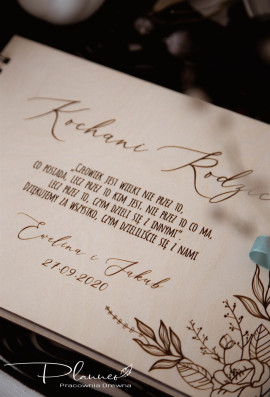 Kochani Rodzic
„Człowiek jest wielki nie przez to,
co posiada, lecz przez to kim jest, nie przez to co ma,
lecz przez to, czym dzieli się z innymi"
Dziękujemy za wszystko, czym dzieliliście się z nami
Ewelina i Jakub
27.09.2020
Planner
Pracownia Drewna